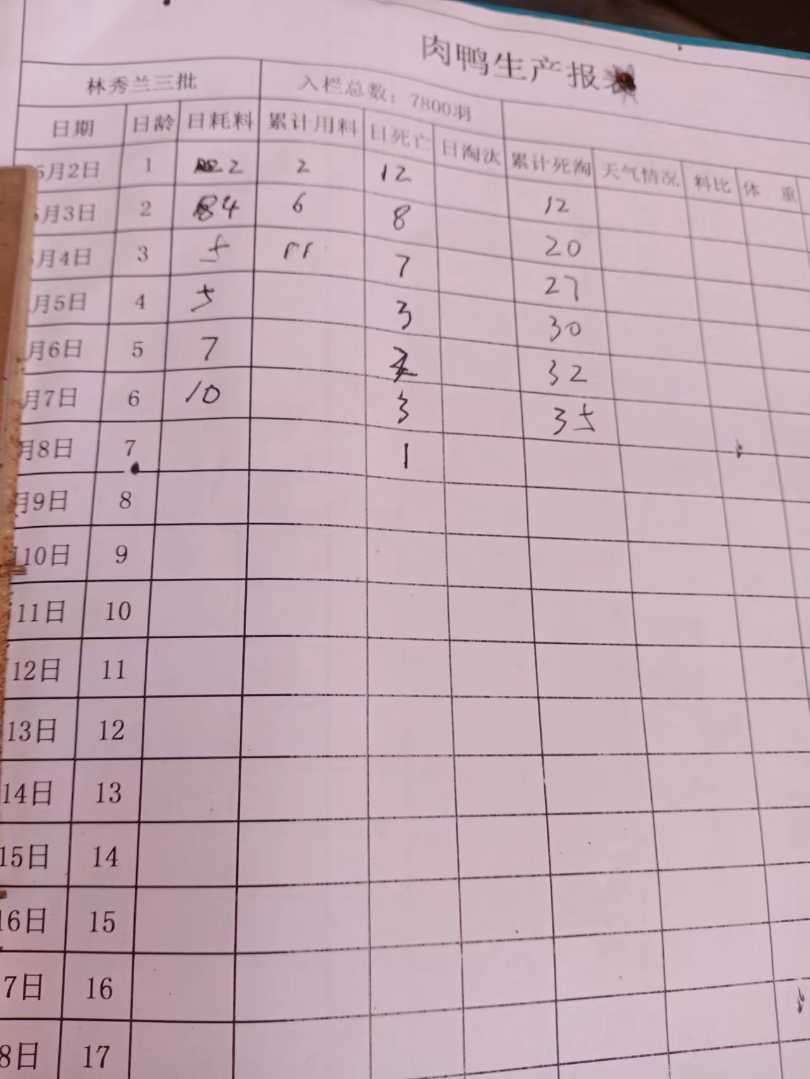 肉鸭生产报
林秀兰三批 入栏总数：7800羽
日期 日龄 日耗料 累计用料 日死亡 日淘汰 累计死淘 天气情况 料比 体 重
月2日 1 2 2 12 12
月3日 2 4 6 8 20
月4日 3 5 11 7 27
月5日 4 5 3 30
月6日 5 7 2 32
月7日 6 10 3 35
月8日 7 1
月9日 8
10日 9
11日 10
12日 11
13日 12
14日 13
15日 14
16日 15
7日 16
8日 17